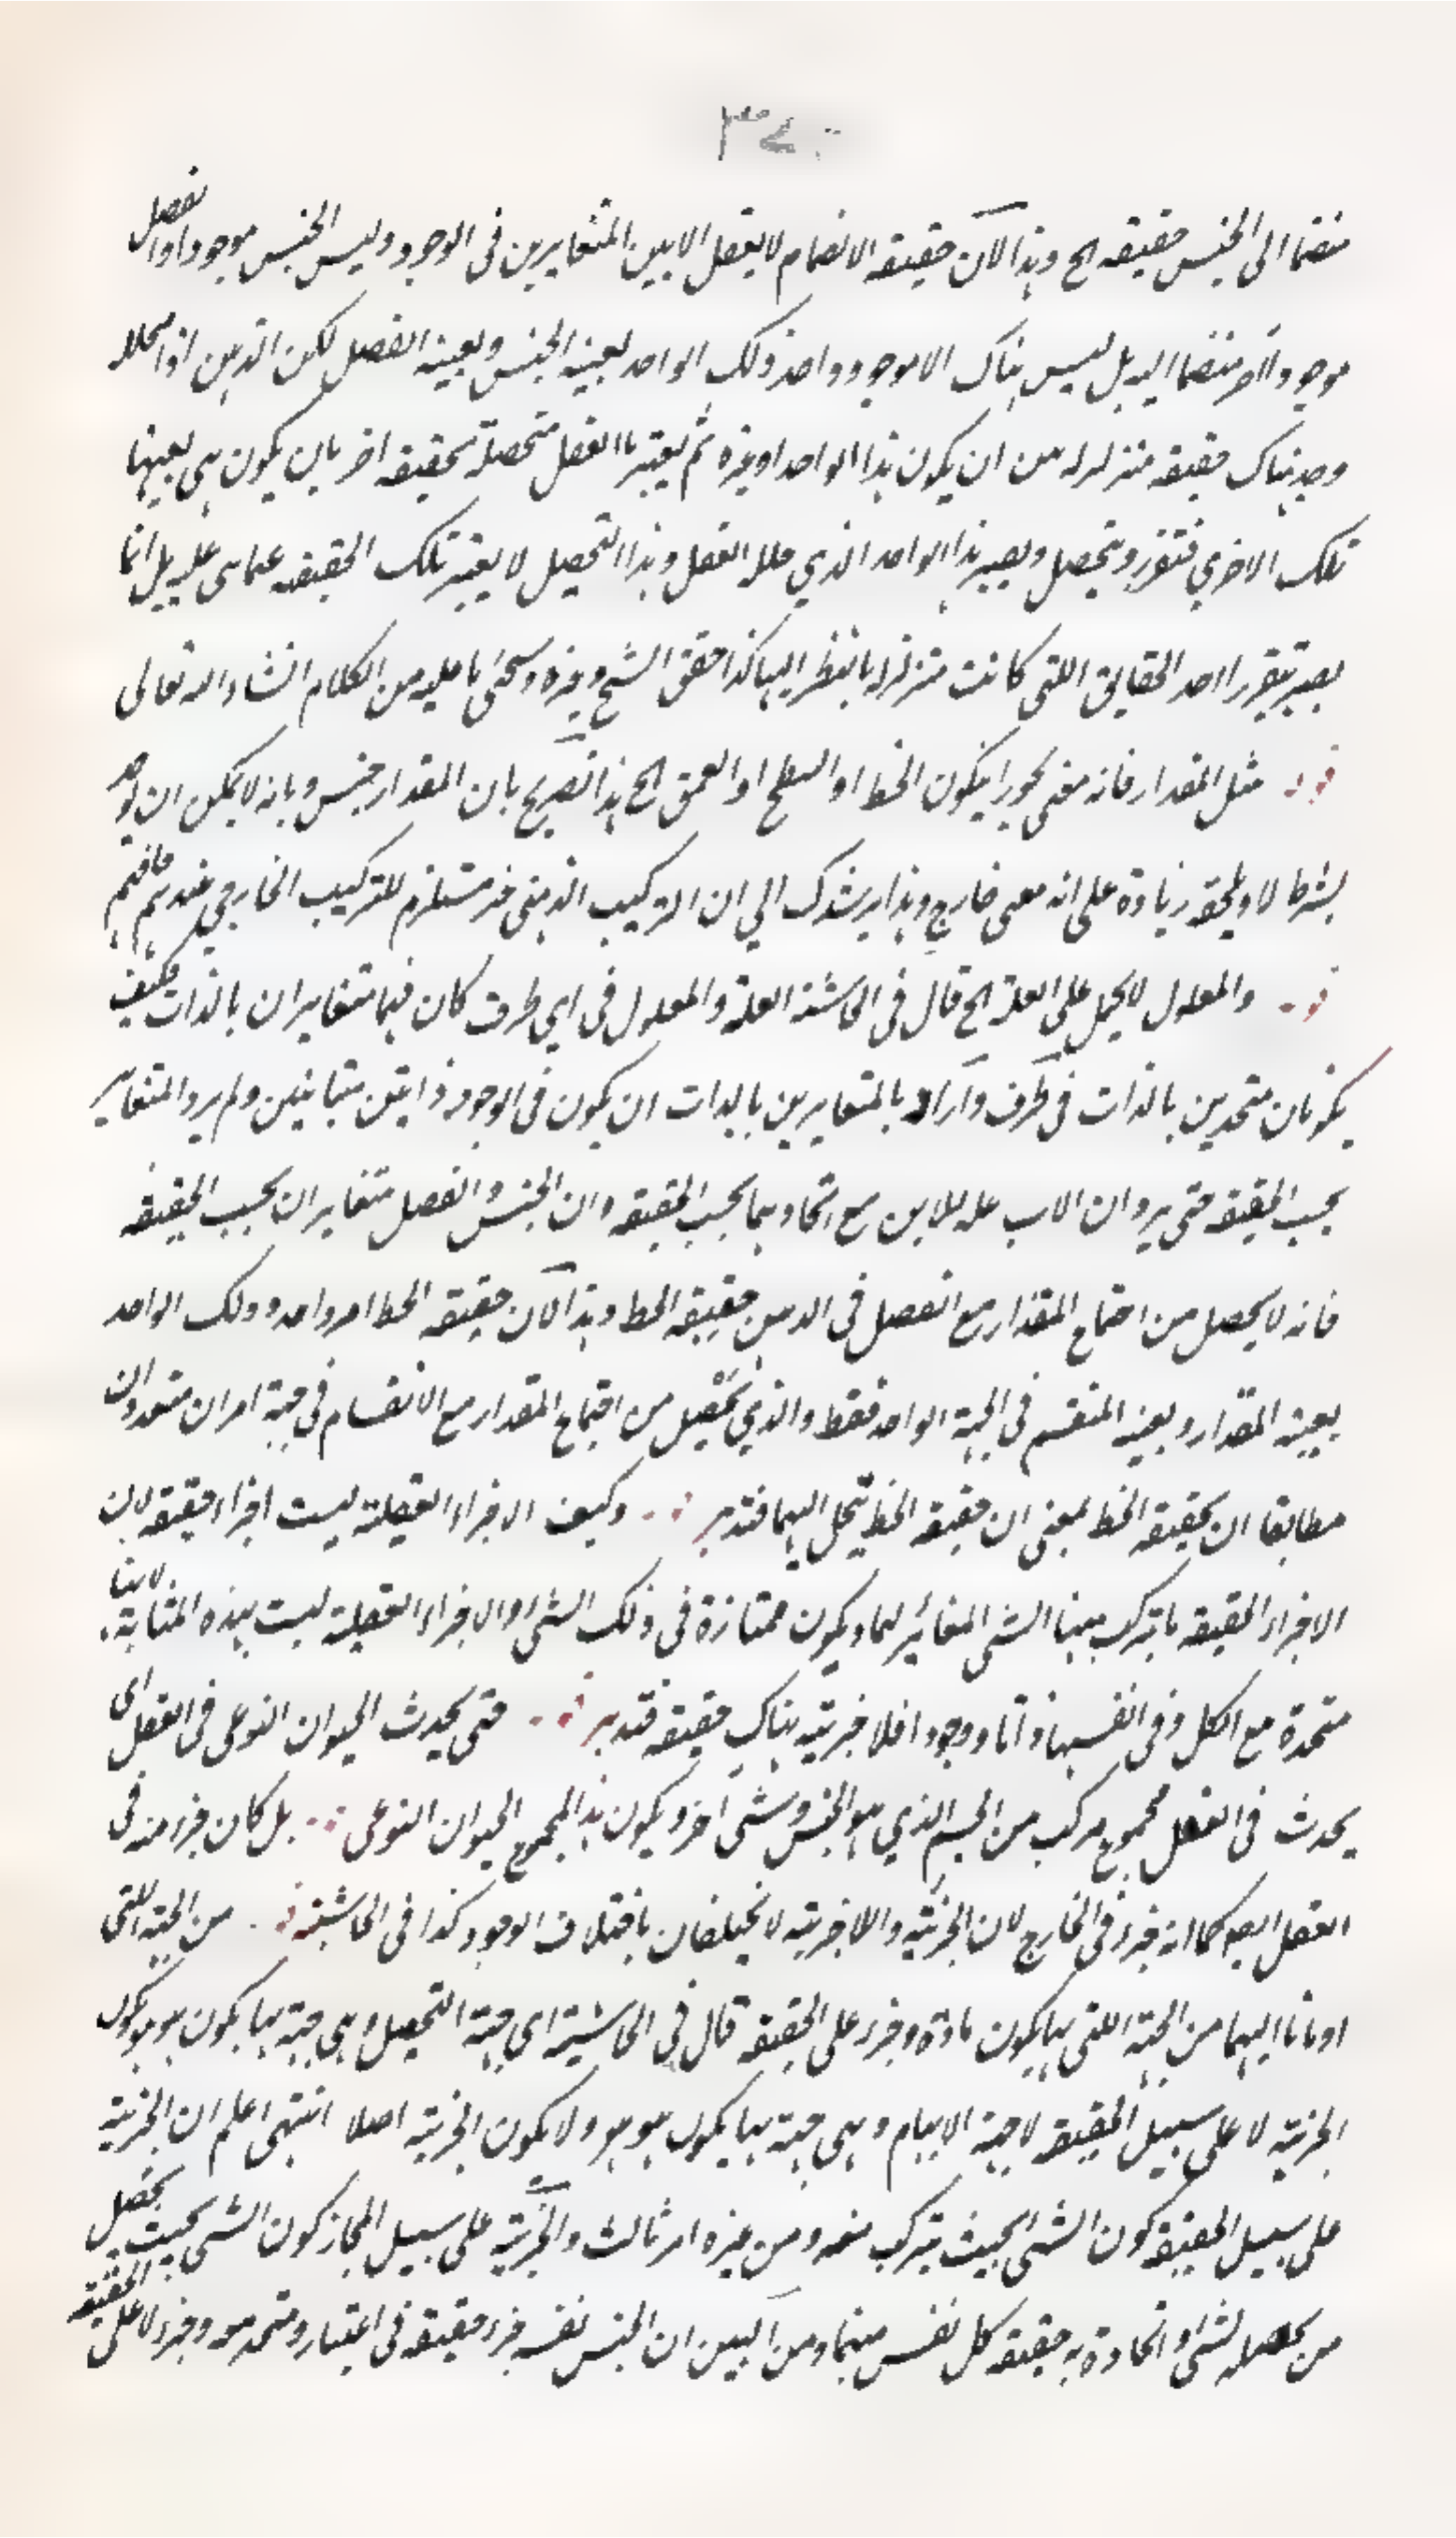 ٣٤٠
منضما الى الجنس حقيقه الخ وهذا لان حقيقه الانضمام لا يعقل الا بين المتغايرين فى الوجود وليس الجنس موجودا والفصل
موجودا آخر منضما اليه بل ليس هناك الا موجود واحد ذلك الواحد بعينه الجنس وبعينه الفصل لكن الذهن اذا حلله
وجد هناك حقيقه متزلزله من ان يكون هذا الواحد او غيره ثم يعتبرها العقل متحصلة بحقيقه اخر بان يكون هى بعينها
تلك الاخرى فتقرر ويتحصل ويصير هذا الواحد الذي حلله العقل وهذا التحصيل لا يغير تلك الحقيقه عما هى عليه بل انما
يصير بتقررا احد الحقايق اللتى كانت متزلزله بالنظر اليها كذا حقق الشيخ وغيره وسيجئ ما عليه من الكلام انشاء الله تعالى
قوله مثل المقدار فانه معنى يجوز ان يكون الخط او السطح او العمق الخ هذا تصريح بان المقدار جنس وبانه لا يمكن ان يوجد
بشرط لا ويلحقه زيادة على انه معنى خارج وهذا يرشدك الي ان التركيب الذهنى غير مستلزم للتركيب الخارجي عندهم فافهم
قوله والمعلول لا يحمل على العلة الخ قال فى الحاشية العلة والمعلول فى اي ظرف كان فهما متغايران بالذات فكيف
يكونان متحدين بالذات فى ظرف واراد بالمتغايرين بالذات ان يكون فى الوجود ذاتين متباينين ولم يرد المتغاير
بحسب الحقيقه حتى يرد ان الاب علة للابن مع اتحادهما بحسب الحقيقه وان الجنس والفصل متغايران بحسب الحقيقه
فانه لا يحصل من اجتماع المقدار مع الفصل فى الذهن حقيقه الخط وهذا لان حقيقه الخط امر واحد وذلك الواحد
بعينه المقدار وبعينه المنقسم فى الجهة الواحد فقط والذي يحصل من اجتماع المقدار مع الانقسام فى جهة امران متعددان
مطابقا ان بحقيقه الخط بمعنى ان حقيقه الخط يتحل اليهما فتدبر قوله وكيف الاجزاء العقلية ليست اجزاء حقيقه لان
الاجزاء الحقيقه ما يتركب منها الشى المغاير لها ويكون ممتازة فى ذلك الشى والاجزاء العقلية ليست بهذه المثابة لانها
متحدة مع الكل وفى انفسها ذاتا ووجودا فلا جزئية هناك حقيقه فتدبر قوله حتى يحدث الحيوان النوعى فى العقل اى
يحدث فى العقل مجموع مركب من الجسم الذي هو الجنس وشى اخر ويكون هذا المجموع الحيوان النوعى قوله بل كان جزء منه فى
العقل ايضا كما انه جزء فى الخارج لان الجزئية واللاجزئية لا يختلفان باختلاف الوجود كذا فى الحاشية قوله من الجهة اللتى
اومانا اليها من الجهة اللتى بها يكون مادة وجزء على الحقيقه قال فى الحاشية اي جهة التحصيل وهى جهة بها يكون هو هو يكون
الجزئية لا على سبيل الحقيقه لا جهة الابهام وهى جهة بها يكون هو هو ولا يكون الجزئية اصلا انتهى اعلم ان الجزئية
على سبيل الحقيقه كون الشى بحيث يتركب منه ومن غيره امر ثالث والجزئية على سبيل المجاز كون الشى بحيث يحصل
من تحصله لشى او اتحاده به حقيقه كل نفس منهما ومن البين ان الجنس نفسه جزء حقيقه فى اعتبار ومتحد معه وجزء لا على الحقيقه